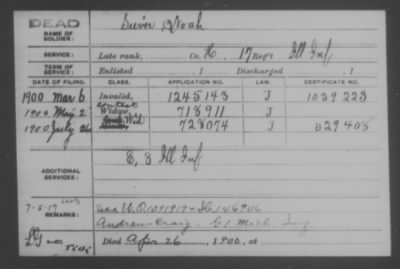 DEAD
NAME OF SOLDIER: Noah
SERVICE: Late rank, Co. K, 17 Reg't Ill Inf
TERM OF SERVICE: Enlisted 1 Discharged , 1
DATE OF FILING. CLASS. APPLICATION NO. LAW. CERTIFICATE NO.
1900 Mar 6 Invalid, 1245143 J 1039223
1900 May 2 Contest Widow, 715911 J
1900 July 26 Wid 728074 J 529408
ADDITIONAL SERVICES: E, 8 Ill Inf
REMARKS: 7-5-17
Andrew Craig - G1 Mich Inf
Died Apr 26, 1900, at